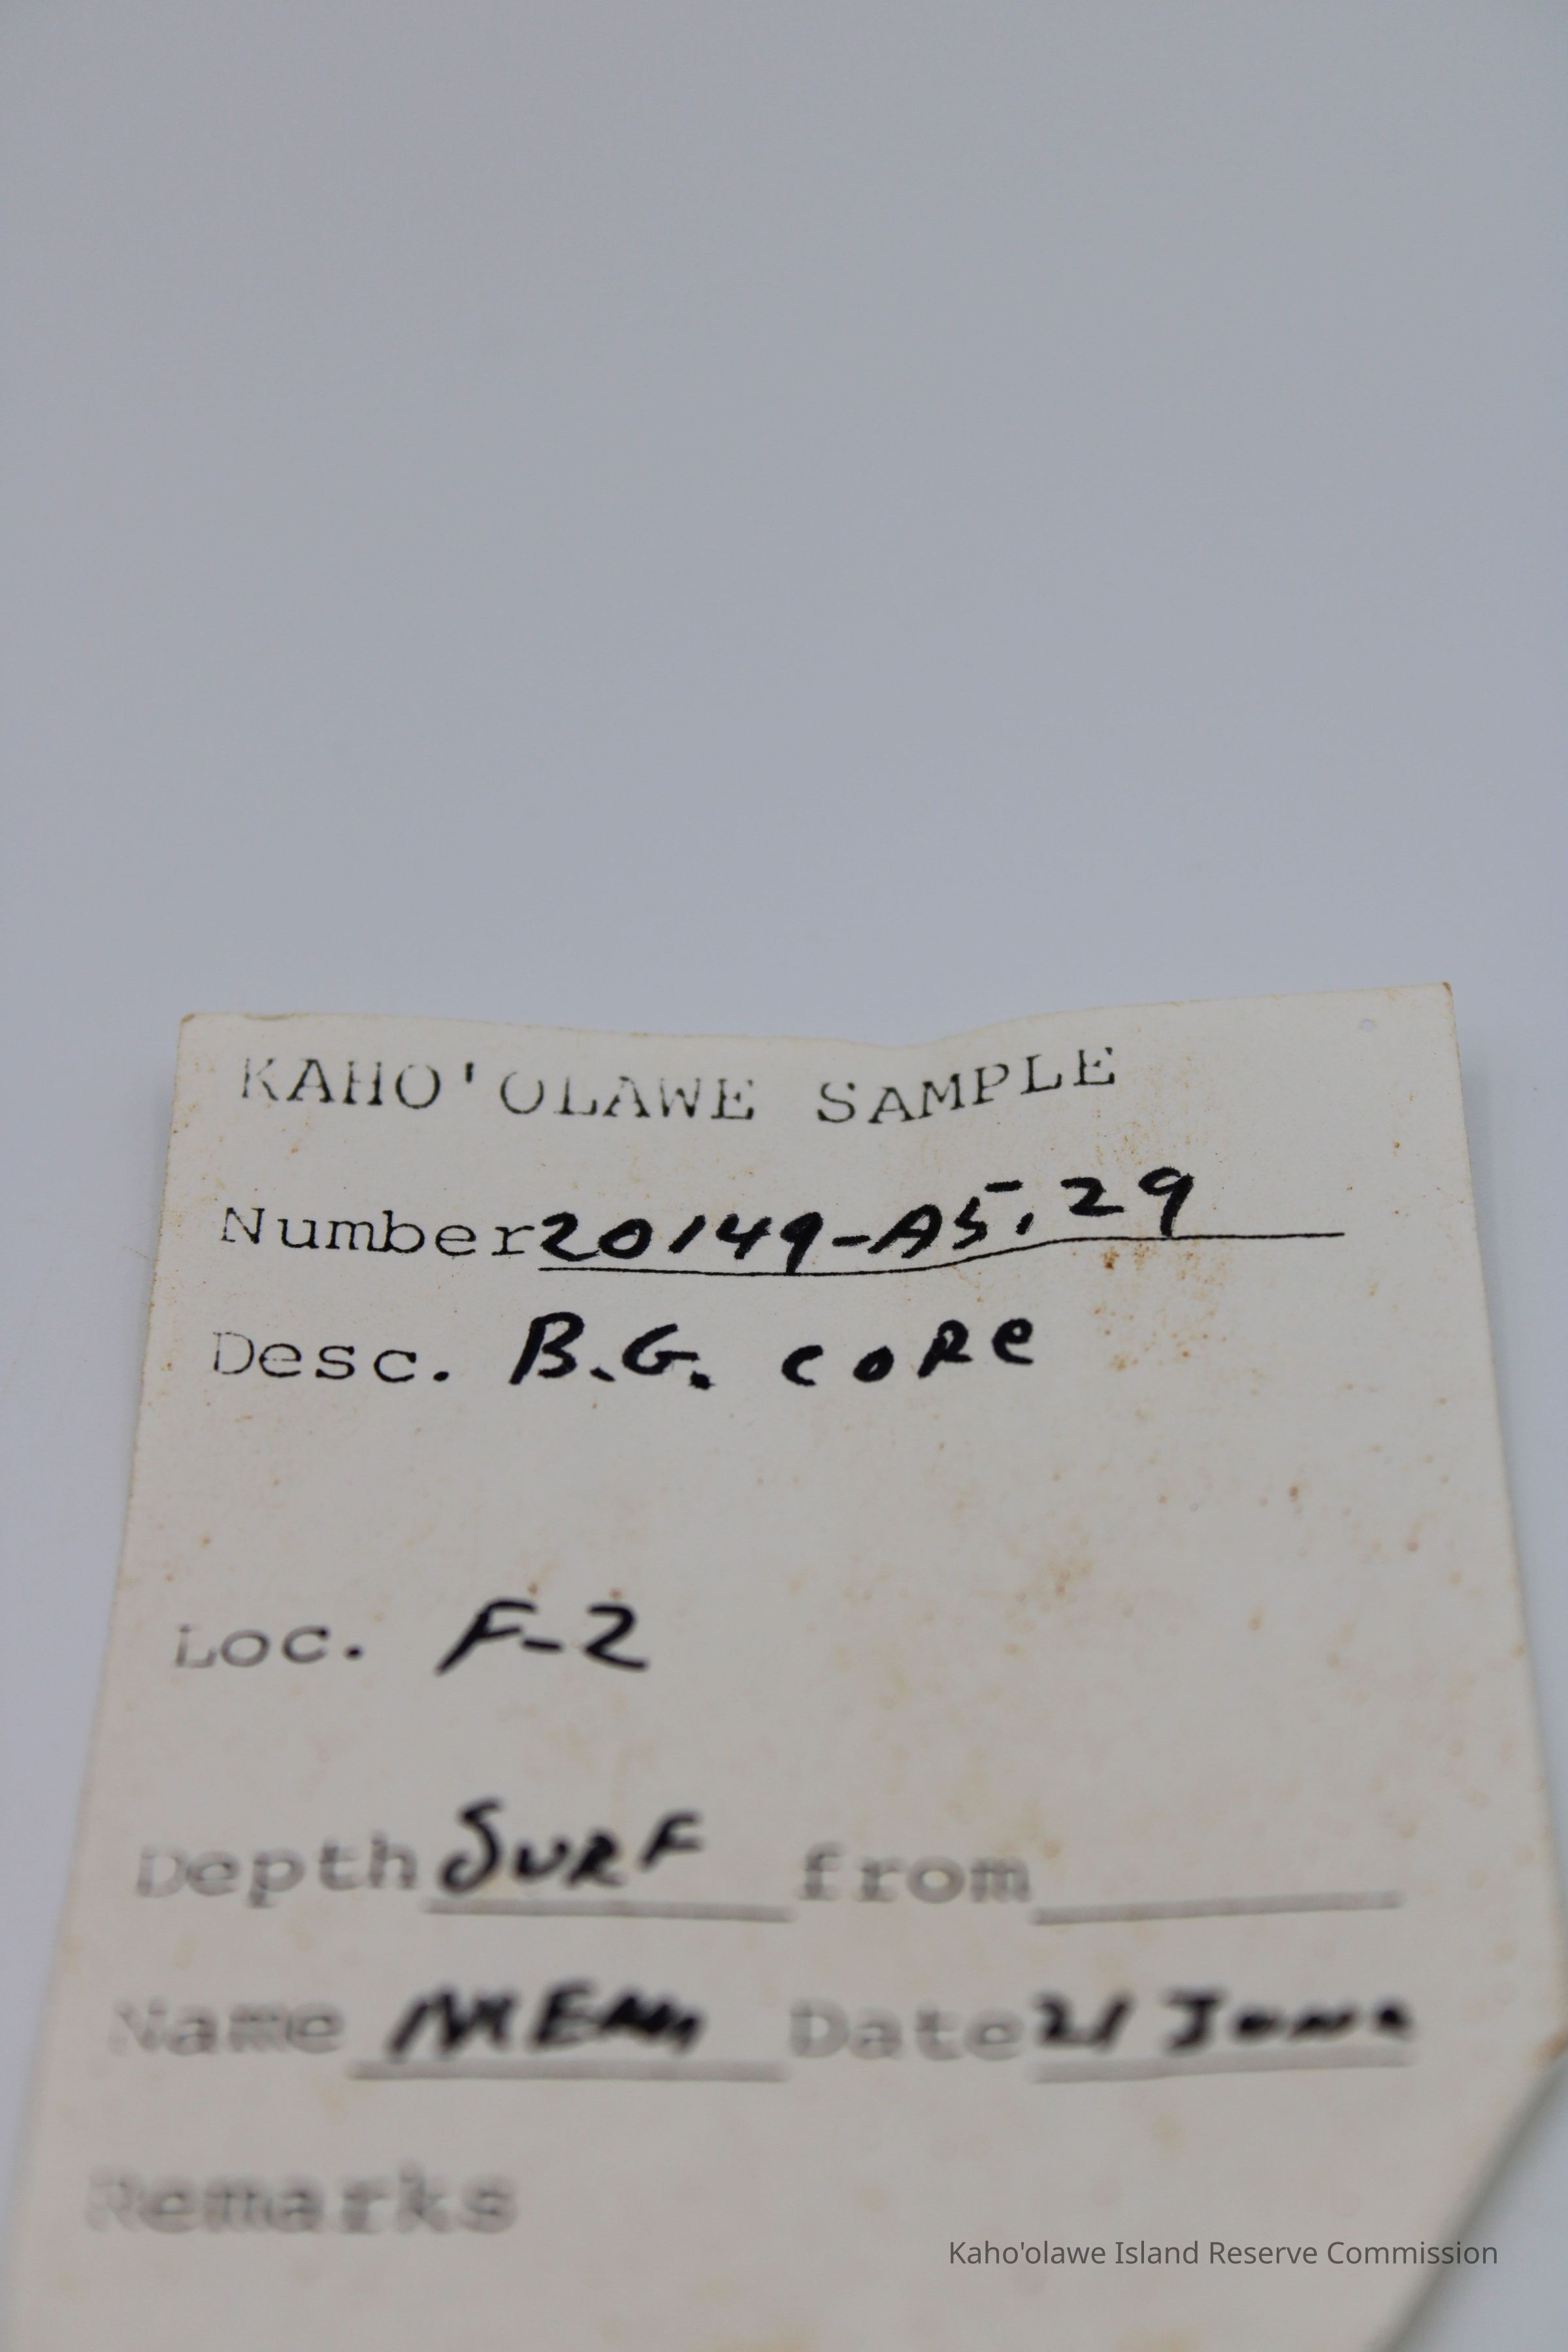 KAHO'OLAWE SAMPLE
Number 20149-A5.29
Desc. B.G. CORe
Loc. F-2
Depth SURF from
Name Date 21 June
Remarks
Kaho'olawe Island Reserve Commission